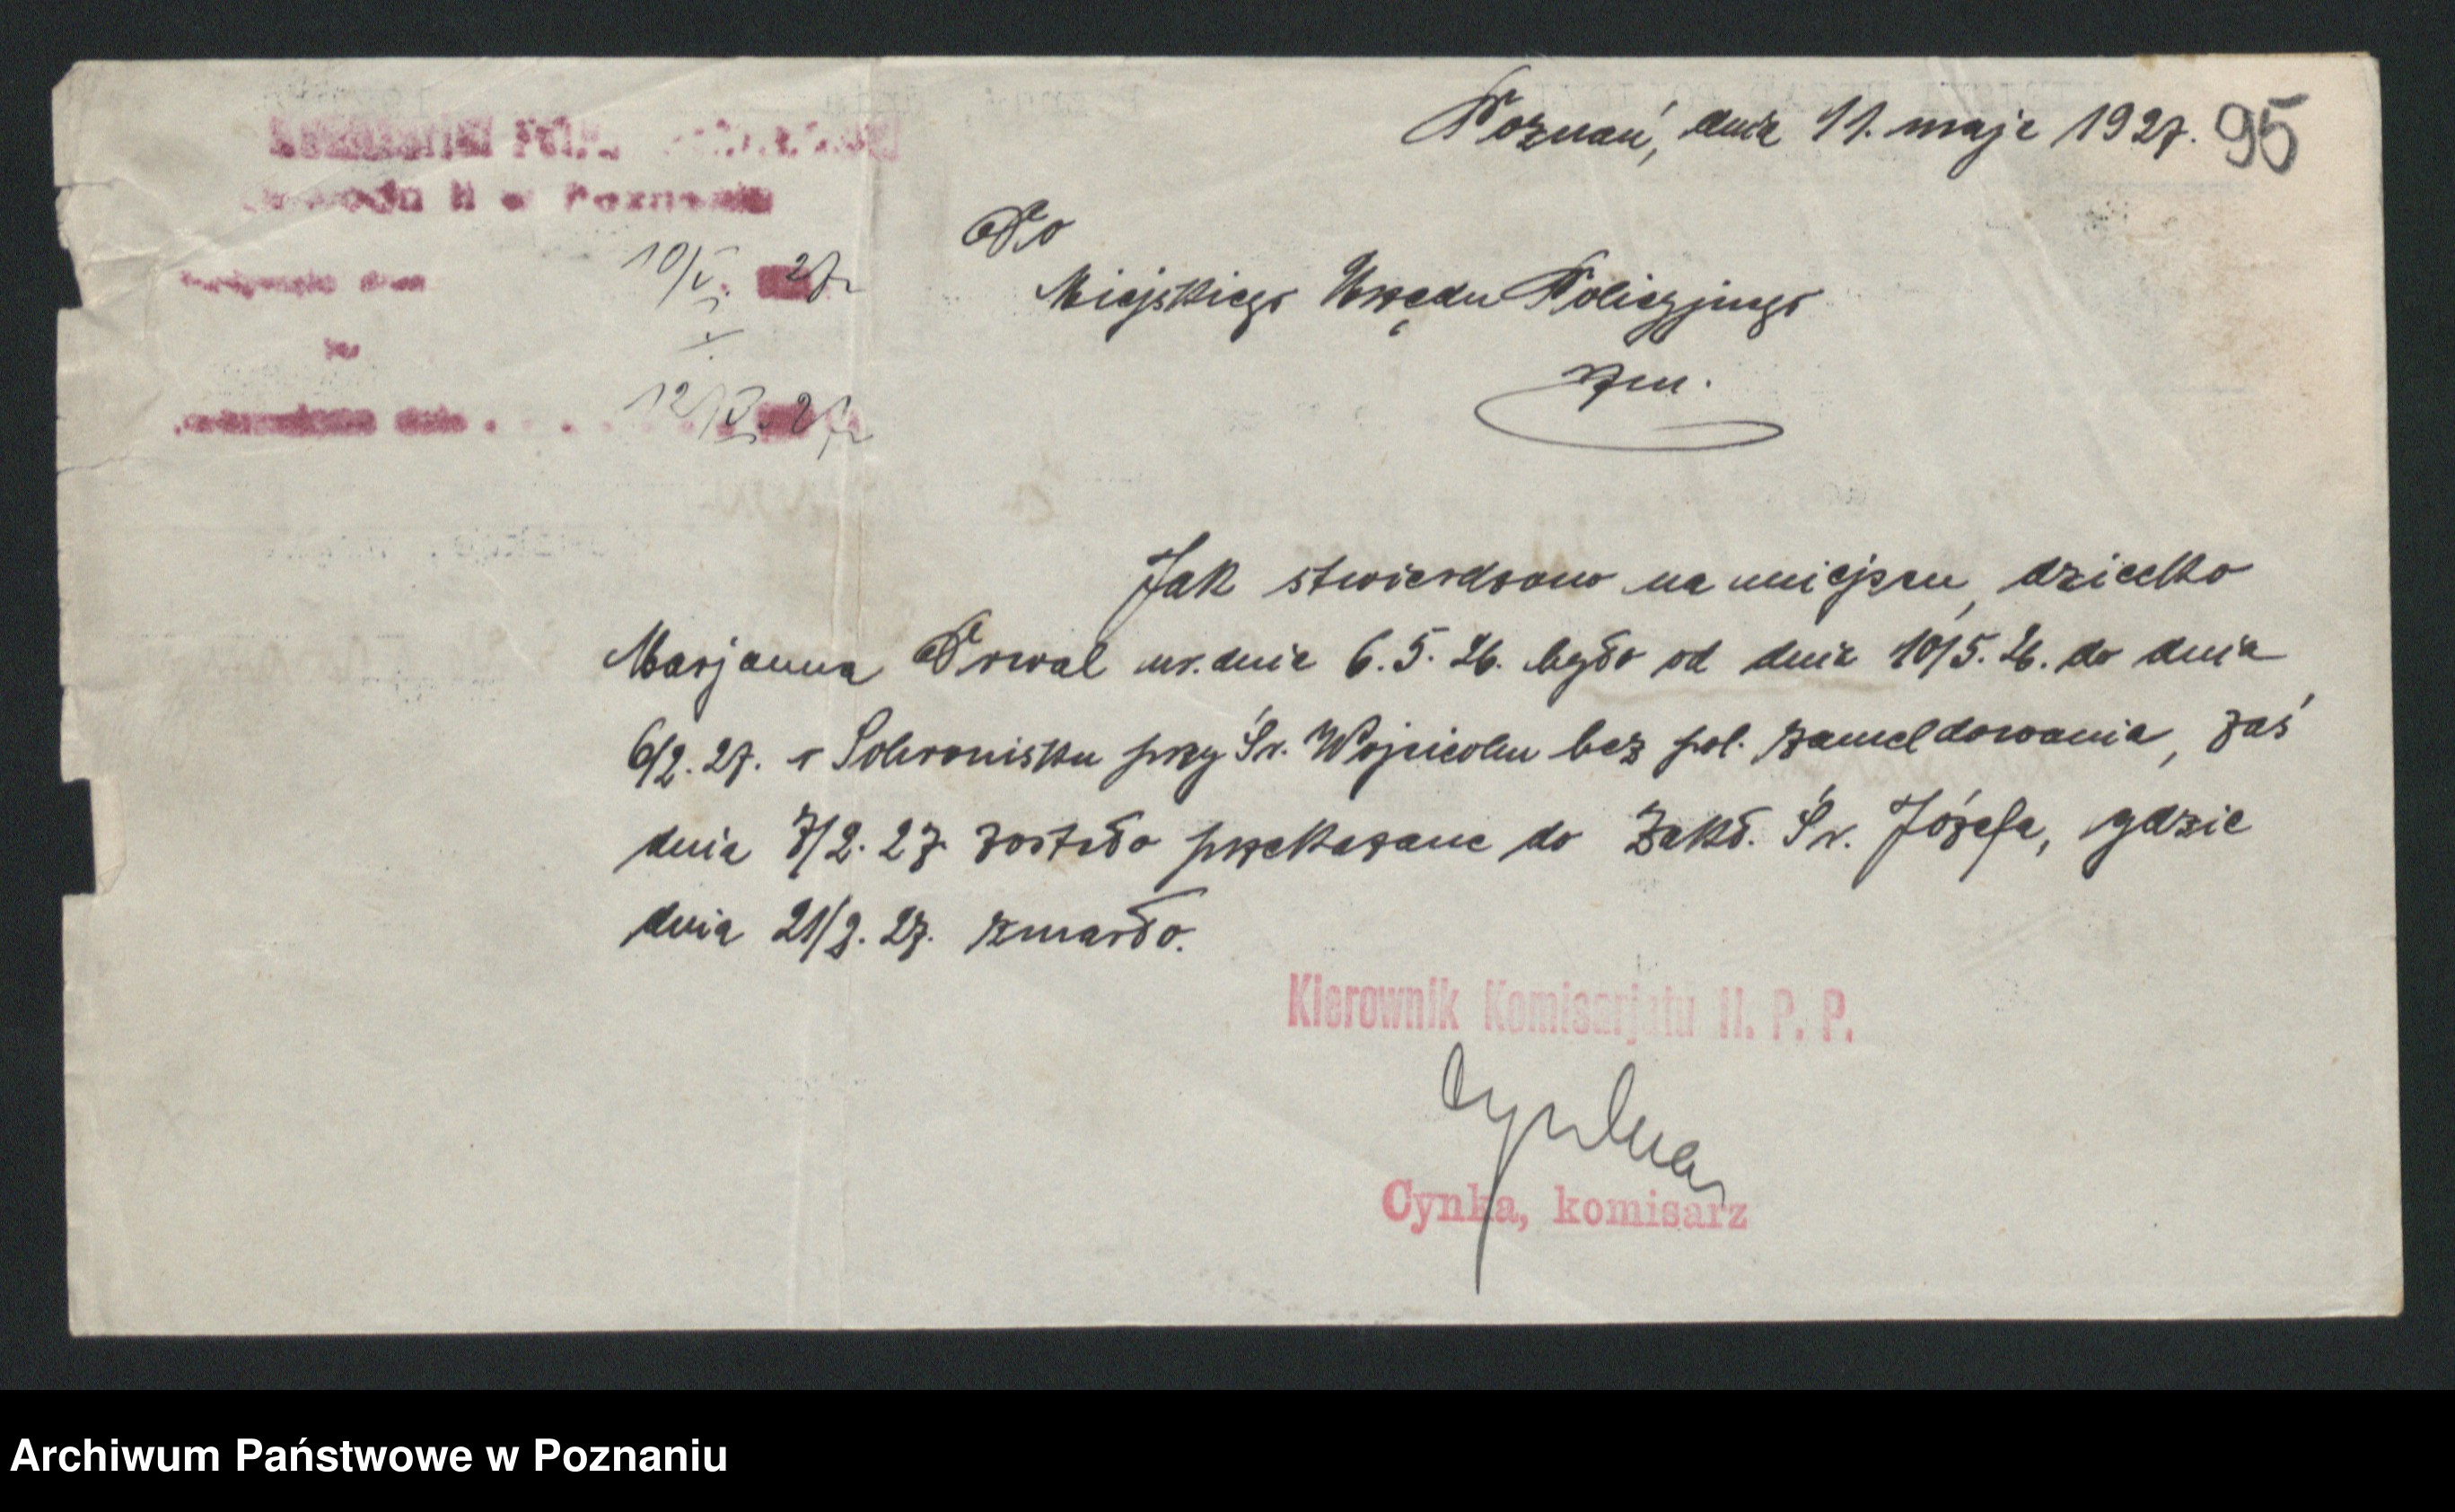 Poznań, dnia 11. maja 1927. 95
w Poznaniu
10/V. 27r
12/V. 27r
Do
Miejskiego Urzędu Policyjnego
wm.
Jak stwierdzono na miejscu, dziecko
Marjanna Drwal ur. dnia 6.5.26. było od dnia 10/5.26. do dnia
6/2.27. w Schronisku przy Św. Wojciechu bez pol. zameldowania, zaś
dnia 7/2.27 zostało przekazane do Zakł. Św. Józefa, gdzie
dnia 21/2.27. zmarło.
Kierownik Komisarjatu II. P. P.
Cynka
Cynka, komisarz
Archiwum Państwowe w Poznaniu